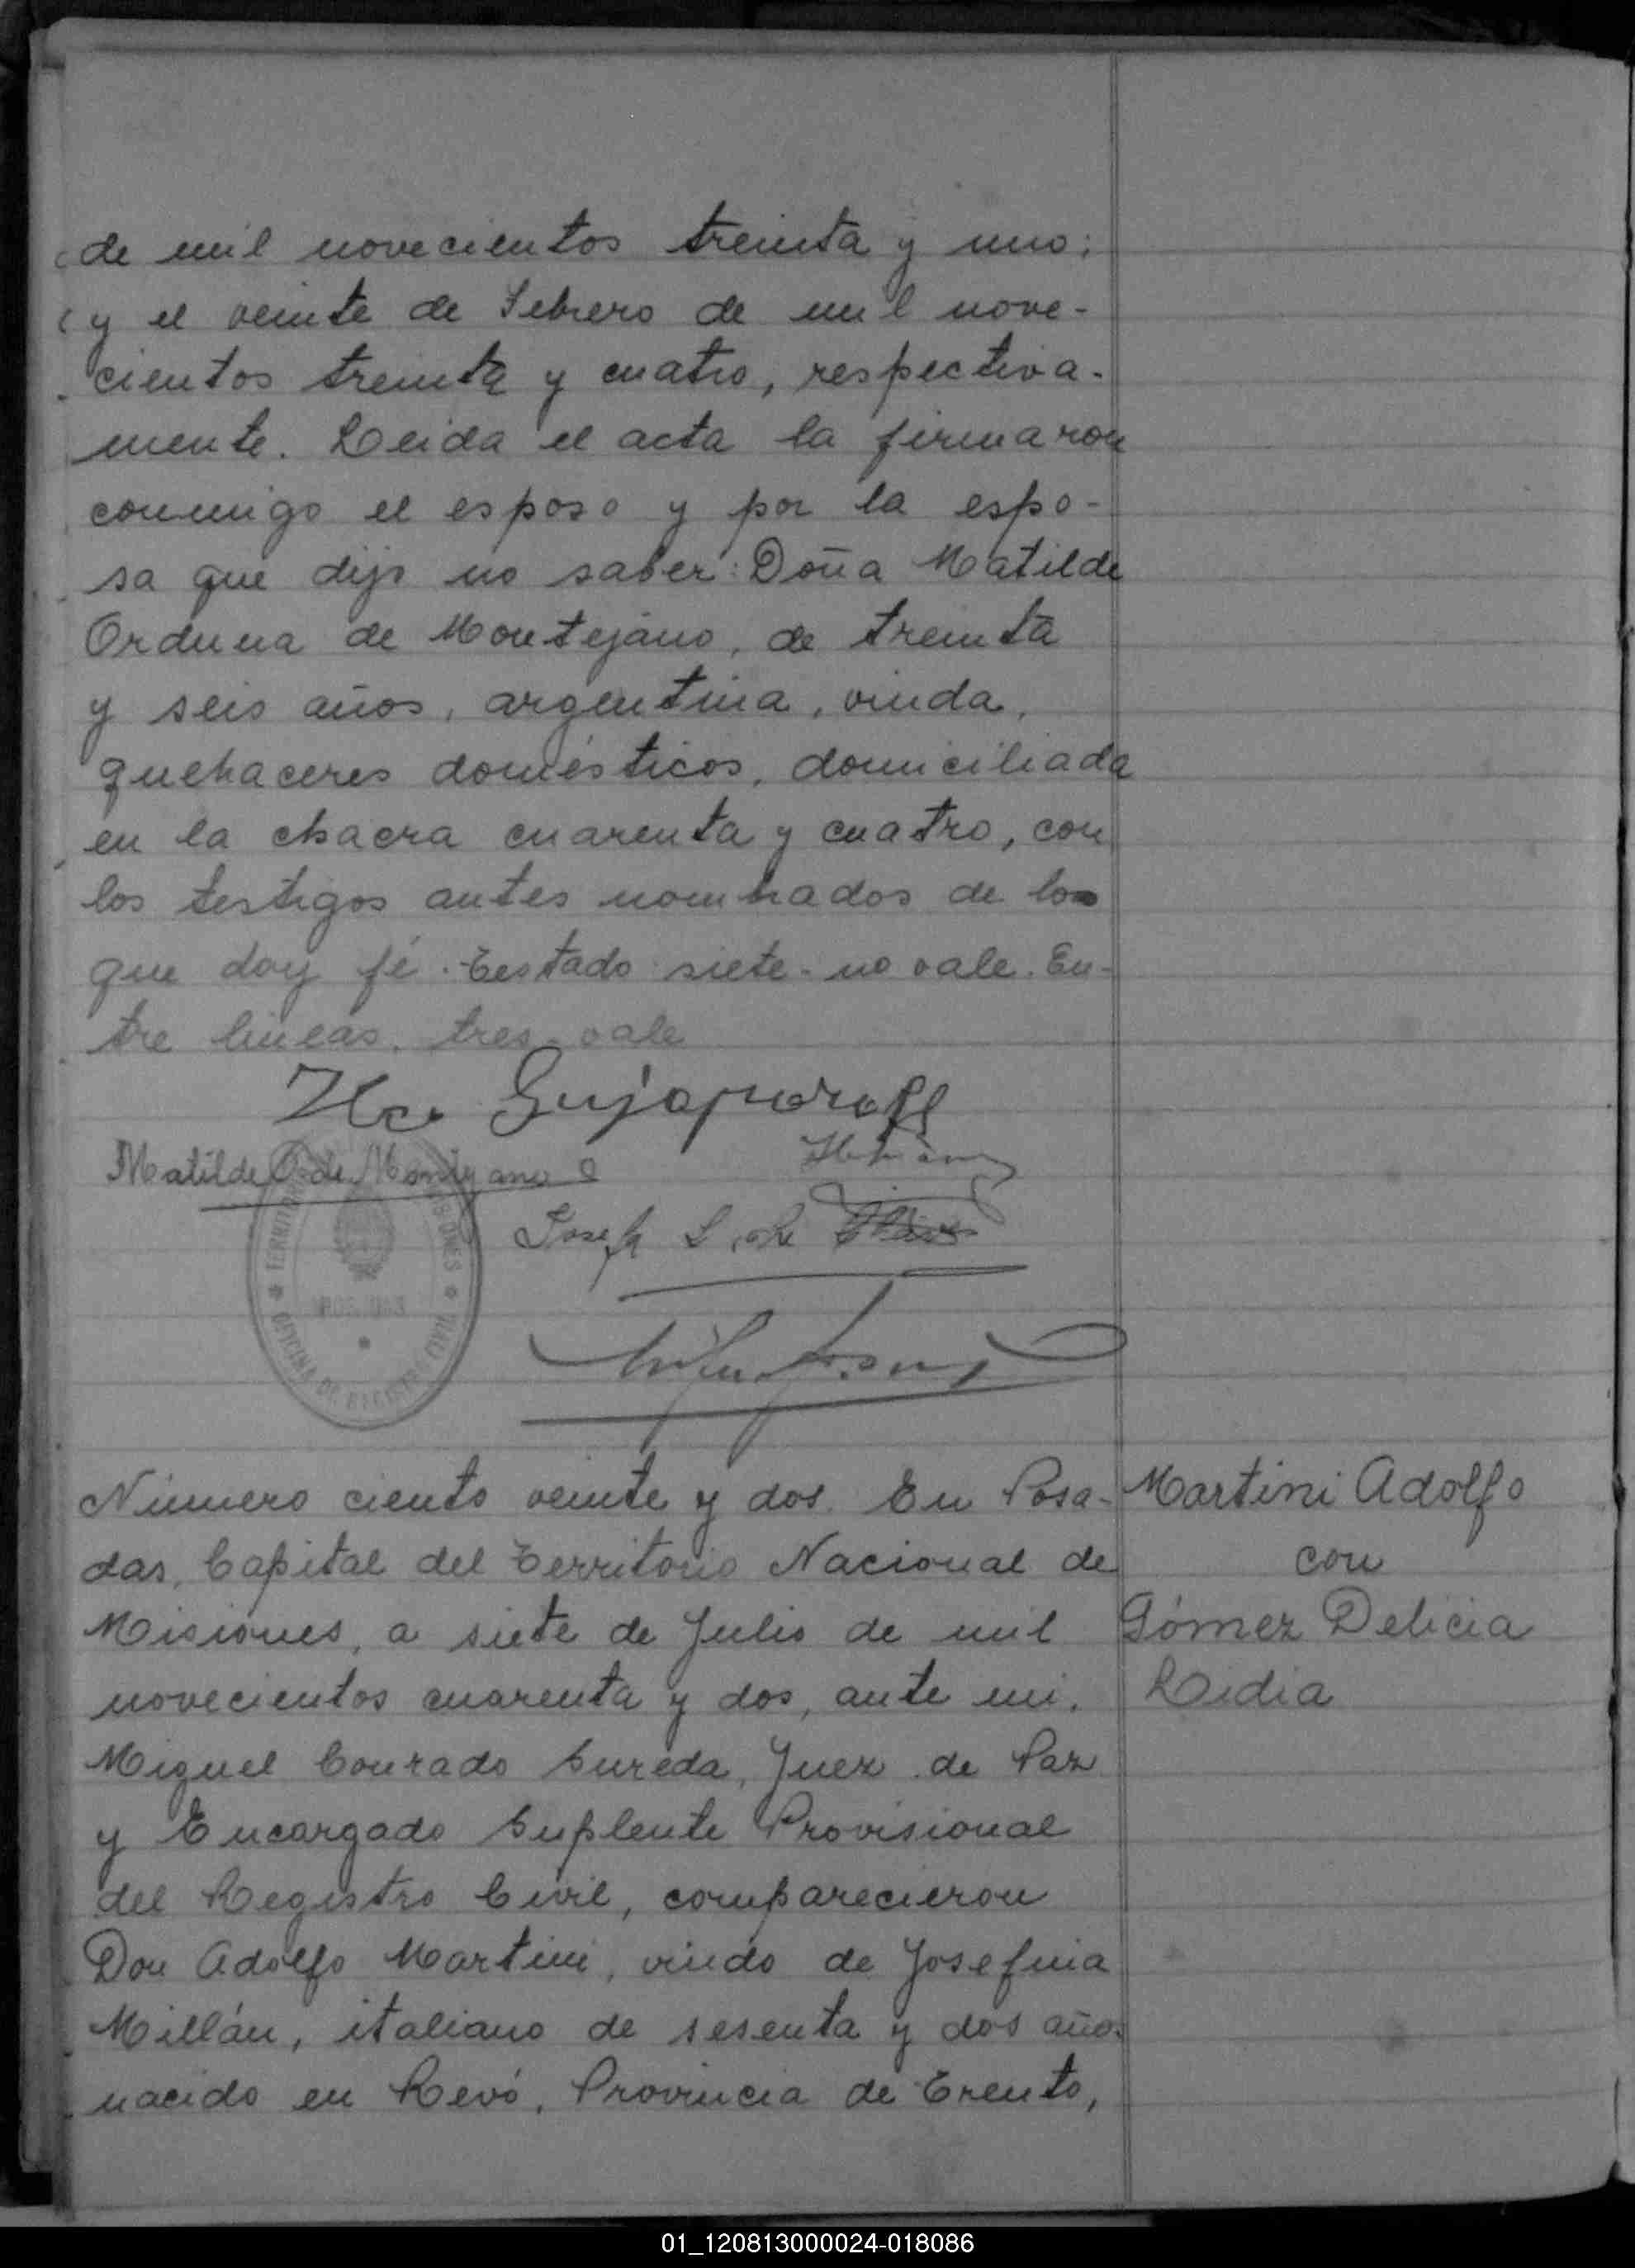 de mil novecientos treinta y uno;
y el veinte de Febrero de mil nove-
cientos treinta y cuatro, respectiva-
mente. Leida el acta la firmaron
conmigo el esposo y por la espo-
sa que dijo no saber: Doña Matilde
Orduna de Montejano, de treinta
y seis años, argentina, viuda,
quehaceres domésticos, domiciliada
en la chacra cuarenta y cuatro, con
los testigos antes nombrados de los
que doy fé. Testado siete - no vale. En-
tre lineas. tres. vale
Matilde O. de Montejano
Josefa
TERRITORIO MISIONES
POSADAS
OFICINA DE REGISTRO CIVIL
Número ciento veinte y dos. En Posa-
das, Capital del Territorio Nacional de
Misiones, a siete de Julio de mil
novecientos cuarenta y dos, ante mi,
Miguel Conrado Sureda, Juez de Paz
y Encargado Suplente Provisional
del Registro Civil, comparecieron
Don Adolfo Martini, viudo de Josefina
Millán, italiano de sesenta y dos años
nacido en Revó, Provincia de Trento,
Martini Adolfo
con
Gómez Delicia
Lidia
01_120813000024-018086